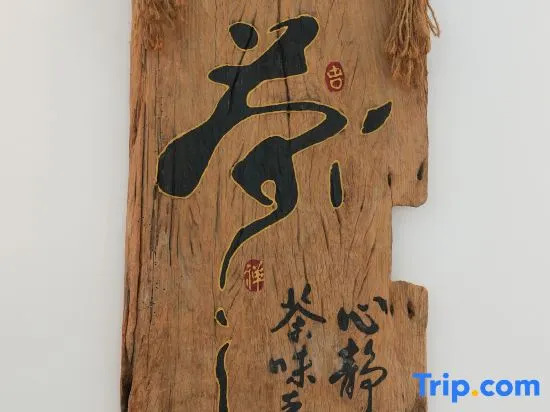 茶
吉
禅
心静
茶味
Trip.com